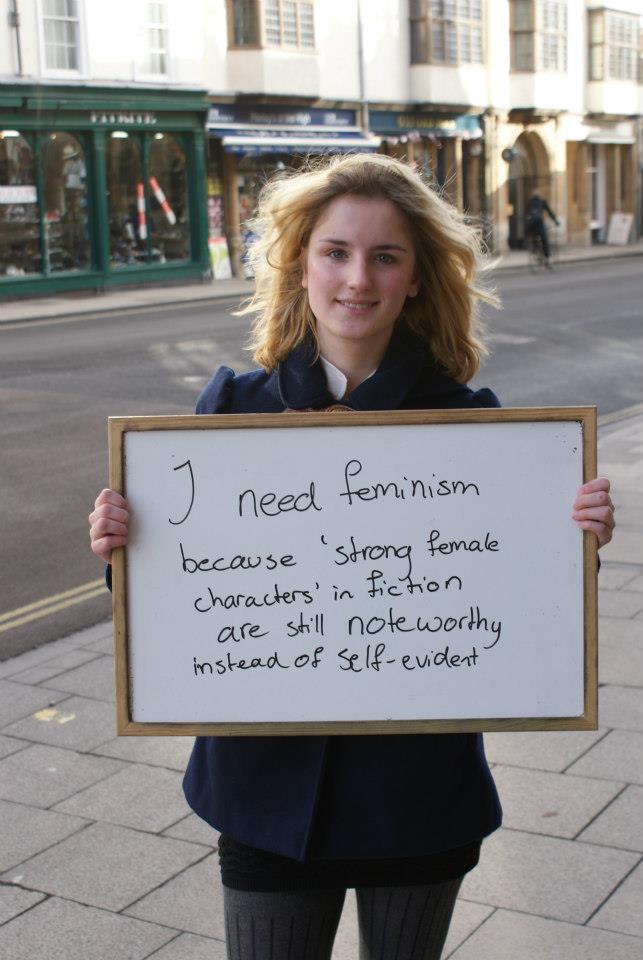 I need feminism
because 'strong female
characters' in fiction
are still noteworthy
instead of self-evident